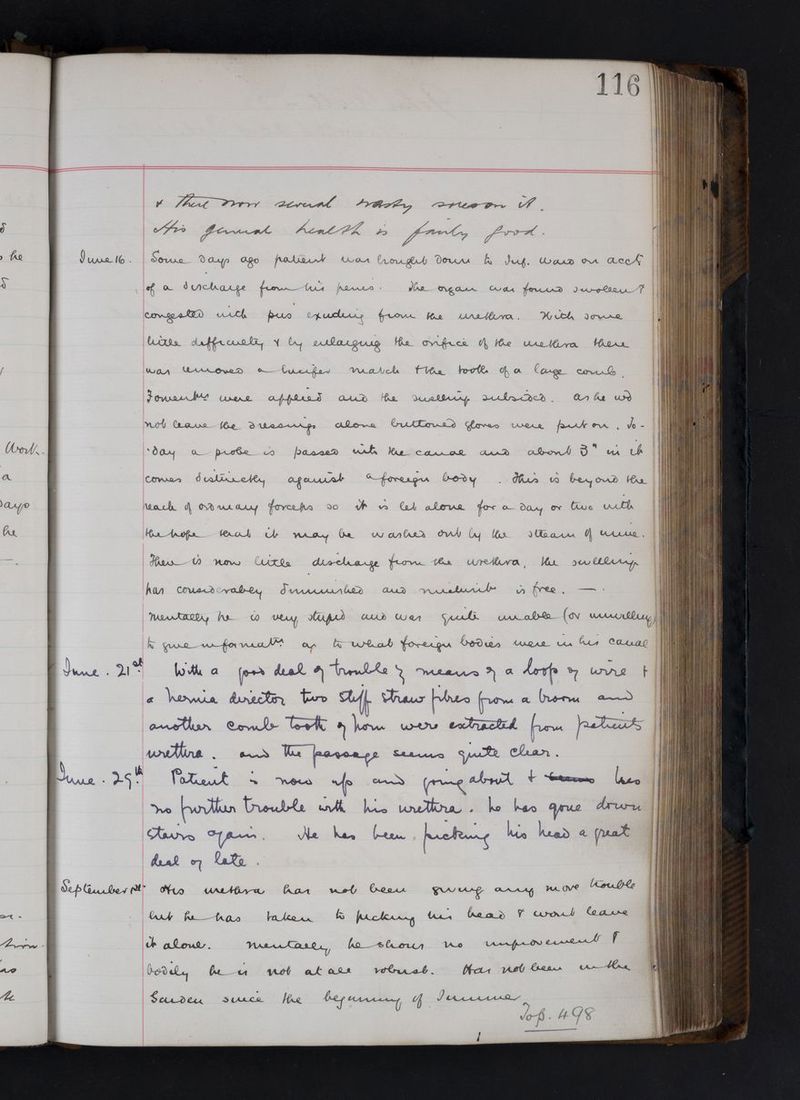 116
& there are now several nasty sores on it.
His general health is fairly good.
June 16. Some days ago patient was brought down to Inf. ward on acct
of a discharge from his penis. The organ was found swollen &
congested with pus exuding from the urethra. With some
little difficulty & by enlarging the orifice of the urethra there
was removed a lucifer match & the tooth of a large comb.
Fomentns were applied and the swelling subsided. As he wd
not leave the dressings alone buttoned gloves were put on. To-
-day a probe is passed into the canal and about 3" in it
comes distinctly against a foreign body. This is beyond the
reach of ordinary forceps so it is let alone for a day or two with
the hope that it may be washed out by the stream of urine.
There is now little discharge from the urethra, the swelling
has considerably diminished and micturitn is free. —.
Mentally he is very stupid and was quite unable (or unwilling)
to give informatn as to what foreign bodies were in his canal
June. 21st With a good deal of trouble & means of a loop of wire &
a hernia director two stiff straw fibres from a broom and
another comb tooth of horn were extracted from patients
urethra. and the passage seems quite clear.
June. 29th Patient is now up and going about & has
no further trouble with his urethra. he has gone down
stairs again. He has been picking his head a great
deal of late.
September 1st His urethra has not been giving any more trouble
but he has taken to picking his head & wont leave
it alone. Mentally he shows no improvement &
bodily he is not at all robust. Has not been in the
Garden since the beginning of Summer.
To p. 498
he
Work.
a
days
he